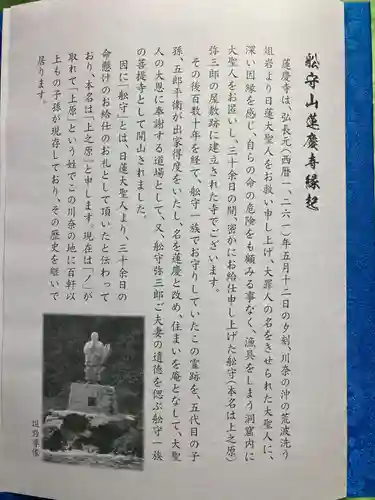 舩守山蓮慶寺縁起
蓮慶寺は、弘長元(西暦一、二六一)年五月十二日の夕刻、川奈の沖の荒波洗う
俎岩より日蓮大聖人をお救い申し上げ、大罪人の名をきせられた大聖人に、
深い因縁を感じ、自らの命の危険をも顧みる事なく、漁具をしまう洞窟内に
大聖人をお匿いし、三十余日の間、密かにお給仕申し上げた舩守(本名は上之原)
弥三郎の屋敷跡に建立された寺でございます。
その後百数十年を経て、舩守一族でお守りしていたこの霊跡を、五代目の子
孫、五郎平衛が出家得度をいたし、名を蓮慶と改め、住まいを庵となして、大聖
人の大恩に奉謝する道場として、又、舩守弥三郎ご夫妻の遺徳を偲ぶ舩守一族
の菩提寺として開山されました。
因に「舩守」とは、日蓮大聖人より、三十余日の
命懸けのお給仕のお礼として頂いたと伝わって
おり、本名は「上之原」と申します。現在は「ノ」が
取れて「上原」という姓でこの川奈の地に百軒以
上もの子孫が現存しており、その歴史を継いで
居ります。